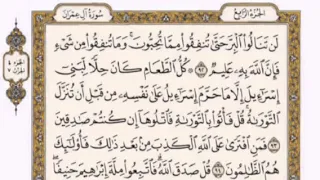 سُورَةُ آلِ عِمْرَانَ
الجُزءُ الرَّابِعُ
لَن تَنَالُوا۟ ٱلْبِرَّ حَتَّىٰ تُنفِقُوا۟ مِمَّا تُحِبُّونَ ۚ وَمَا تُنفِقُوا۟ مِن شَىْءٍ
فَإِنَّ ٱللَّهَ بِهِۦ عَلِيمٌ ٩٢ ۞ كُلُّ ٱلطَّعَامِ كَانَ حِلًّا لِّبَنِىٓ
إِسْرَٰٓءِيلَ إِلَّا مَا حَرَّمَ إِسْرَٰٓءِيلُ عَلَىٰ نَفْسِهِۦ مِن قَبْلِ أَن تُنَزَّلَ
ٱلتَّوْرَىٰةُ ۗ قُلْ فَأْتُوا۟ بِٱلتَّوْرَىٰةِ فَٱتْلُوهَآ إِن كُنتُمْ صَٰدِقِينَ
٩٣ فَمَنِ ٱفْتَرَىٰ عَلَى ٱللَّهِ ٱلْكَذِبَ مِنۢ بَعْدِ ذَٰلِكَ فَأُو۟لَٰٓئِكَ
هُمُ ٱلظَّٰلِمُونَ ٩٤ قُلْ صَدَقَ ٱللَّهُ ۗ فَٱتَّبِعُوا۟ مِلَّةَ إِبْرَٰهِيمَ حَنِيفًا